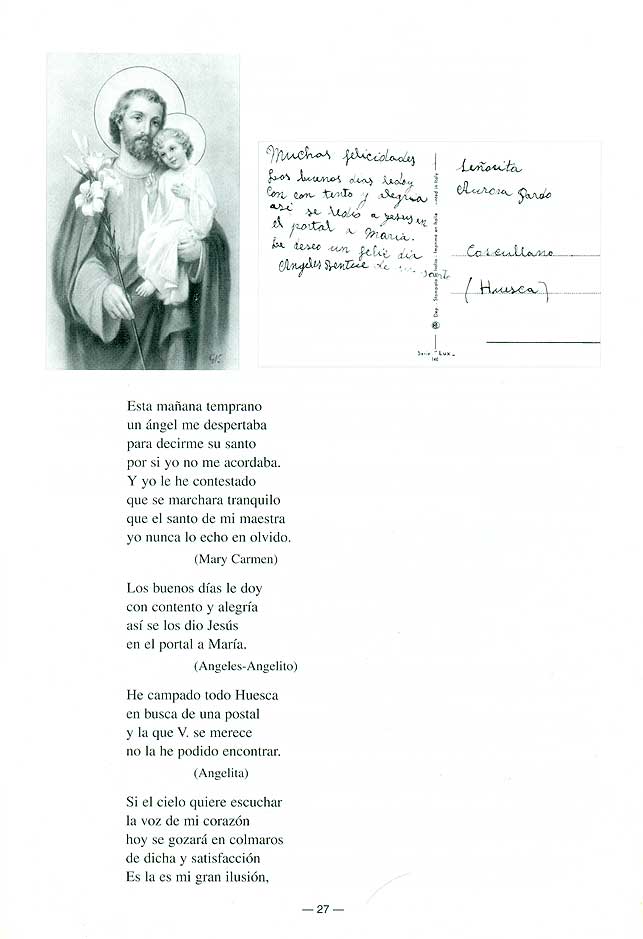 Muchas felicidades
Los buenos dias ledoy
Con con tento y alegria
asi se ledio a Jesus en
el portal a Maria.
Le deseo un feliz dia
Angeles de su santo
Señorita
Aurora Pardo
Coscullano
(Huesca)
Serie "Lux"
Esta mañana temprano
un ángel me despertaba
para decirme su santo
por si yo no me acordaba.
Y yo le he contestado
que se marchara tranquilo
que el santo de mi maestra
yo nunca lo echo en olvido.
(Mary Carmen)
Los buenos días le doy
con contento y alegría
así se los dio Jesús
en el portal a María.
(Angeles-Angelito)
He campado todo Huesca
en busca de una postal
y la que V. se merece
no la he podido encontrar.
(Angelita)
Si el cielo quiere escuchar
la voz de mi corazón
hoy se gozará en colmaros
de dicha y satisfacción
Es la es mi gran ilusión,
— 27 —